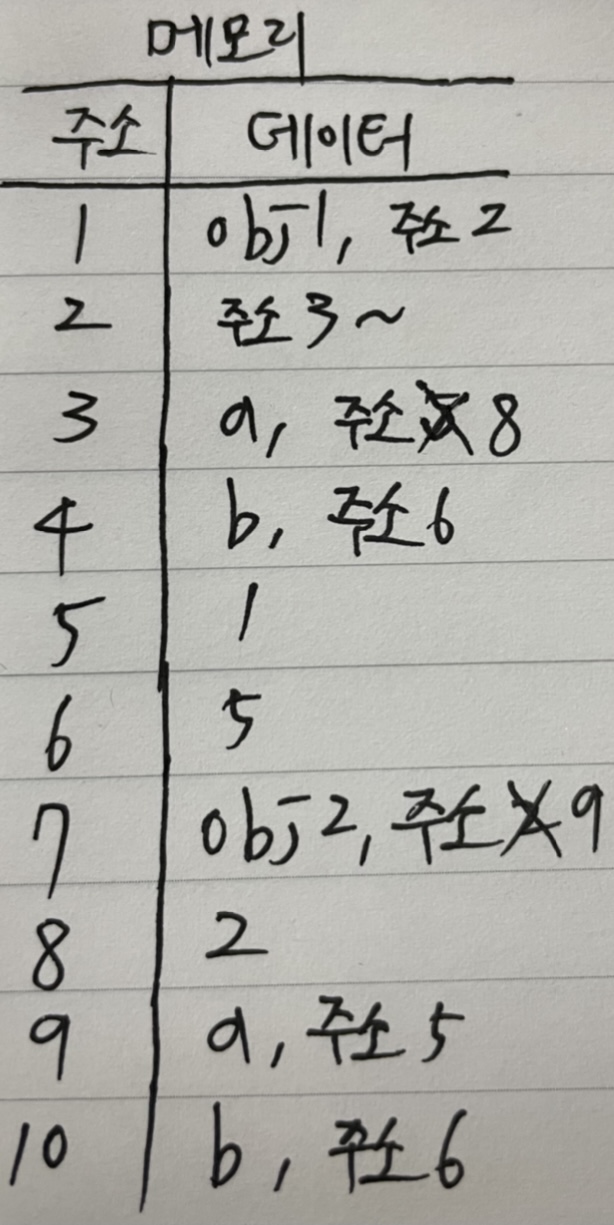 메모리
주소 데이터
1 obj1, 주소 2
2 주소 3 ~
3 a, 주소 8
4 b, 주소 6
5 1
6 5
7 obj2, 주소 9
8 2
9 a, 주소 5
10 b, 주소 6